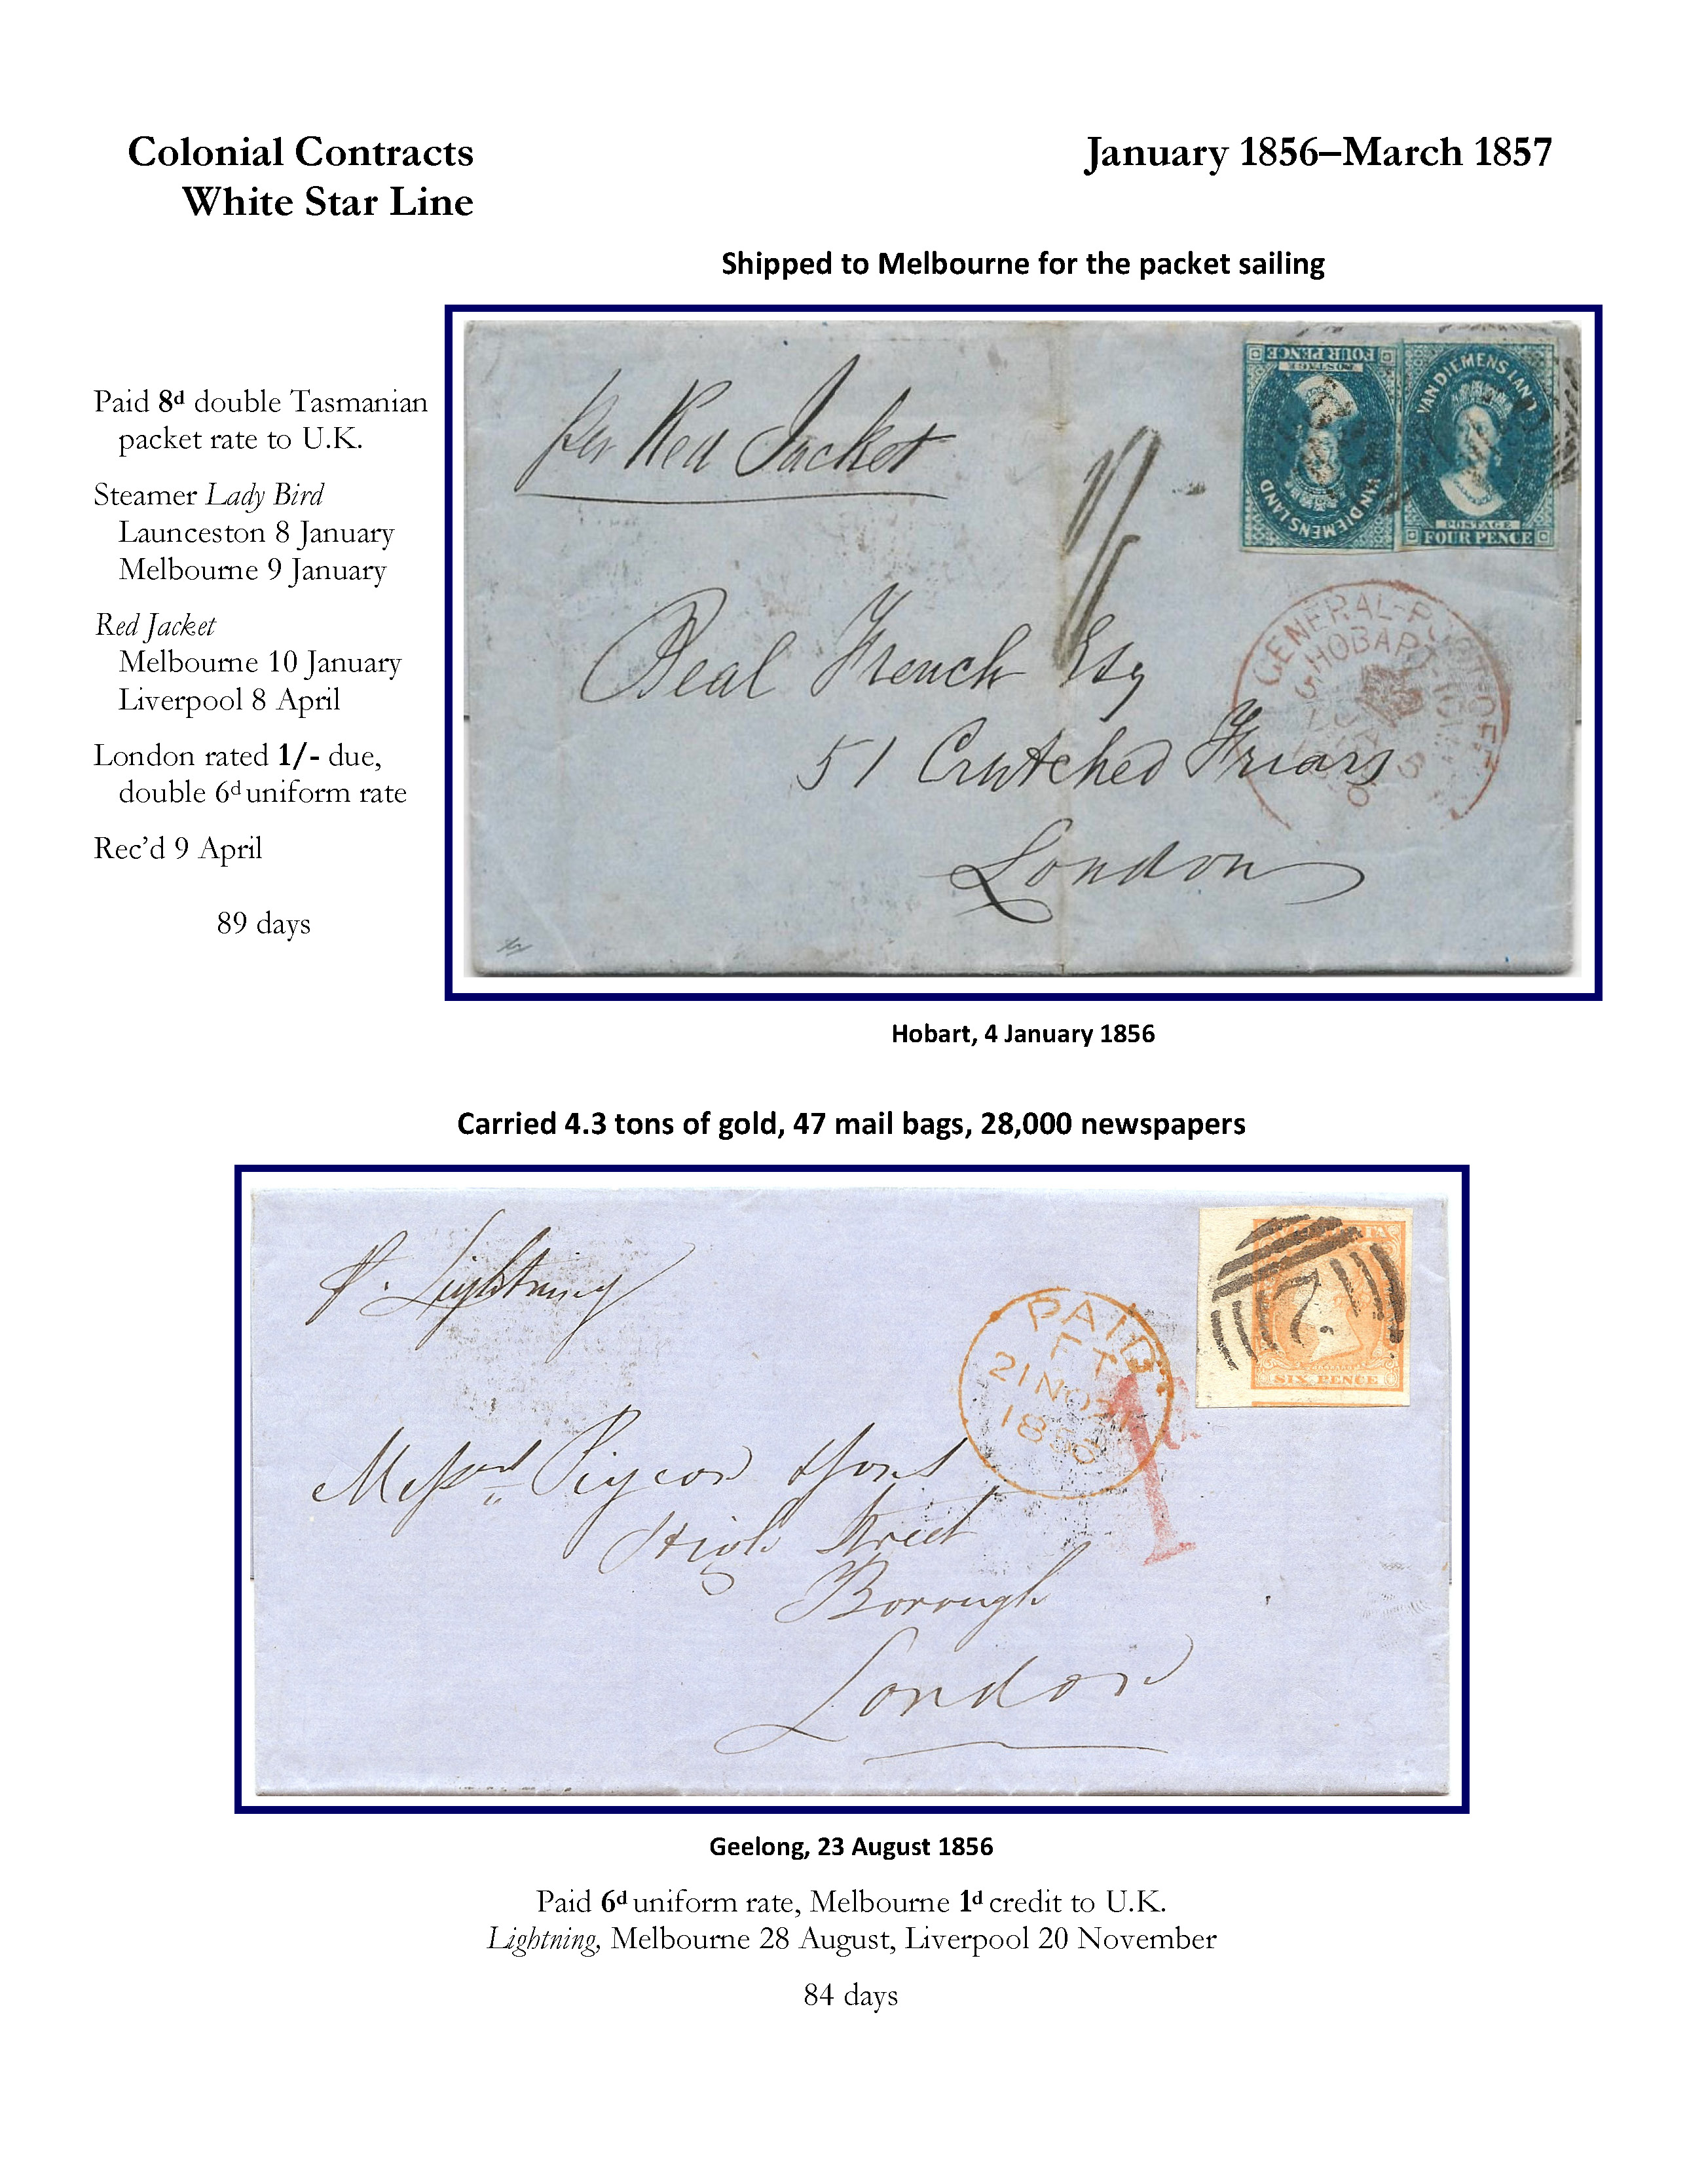 Colonial Contracts
White Star Line
January 1856–March 1857
Shipped to Melbourne for the packet sailing
Paid 8d double Tasmanian
packet rate to U.K.
Steamer Lady Bird
Launceston 8 January
Melbourne 9 January
Red Jacket
Melbourne 10 January
Liverpool 8 April
London rated 1/- due,
double 6d uniform rate
Rec'd 9 April
89 days
per Red Jacket
FOUR PENCE
POSTAGE
VAN DIEMENS LAND
VAN DIEMENS LAND
POSTAGE
FOUR PENCE
1/-
GENERAL-POST-OFF
HOBART
Beal French Esq
51 Crutched Friars
London
Hobart, 4 January 1856
Carried 4.3 tons of gold, 47 mail bags, 28,000 newspapers
p. Lightning
SIX PENCE
2
PAID
FT
21 NO
1856
1
Messrs Pigeon & Sons
High Street
Borough
London
Geelong, 23 August 1856
Paid 6d uniform rate, Melbourne 1d credit to U.K.
Lightning, Melbourne 28 August, Liverpool 20 November
84 days